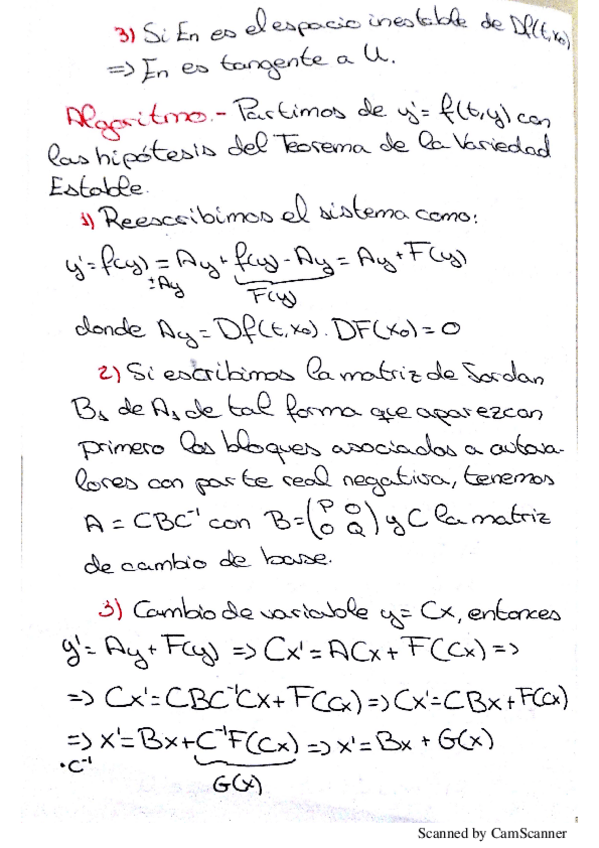 3) Si En es el espacio inestable de Df(t,x₀)
=> En es tangente a U.
Algoritmo.- Partimos de y'= f(t,y) con
las hipótesis del Teorema de la Variedad
Estable.
1) Reescribimos el sistema como:
y'= f(y) = Ay + f(y) - Ay = Ay + F(y)
±Ay F(y)
donde Ay = Df(t,x₀). DF(x₀) = 0
2) Si escribimos la matriz de Jordan
B, de A, de tal forma que aparezcan
primero los bloques asociados a autova-
lores con parte real negativa, tenemos
A = CBC⁻¹ con B = (P 0 0 Q) y C la matriz
de cambio de base.
3) Cambio de variable y = Cx, entonces
y' = Ay + F(y) => Cx' = ACx + F(Cx) =>
=> Cx' = CBC⁻¹Cx + F(Cx) => Cx' = CBx + F(Cx)
=> x' = Bx + C⁻¹F(Cx) => x' = Bx + G(x)
·C⁻¹ G(x)
Scanned by CamScanner